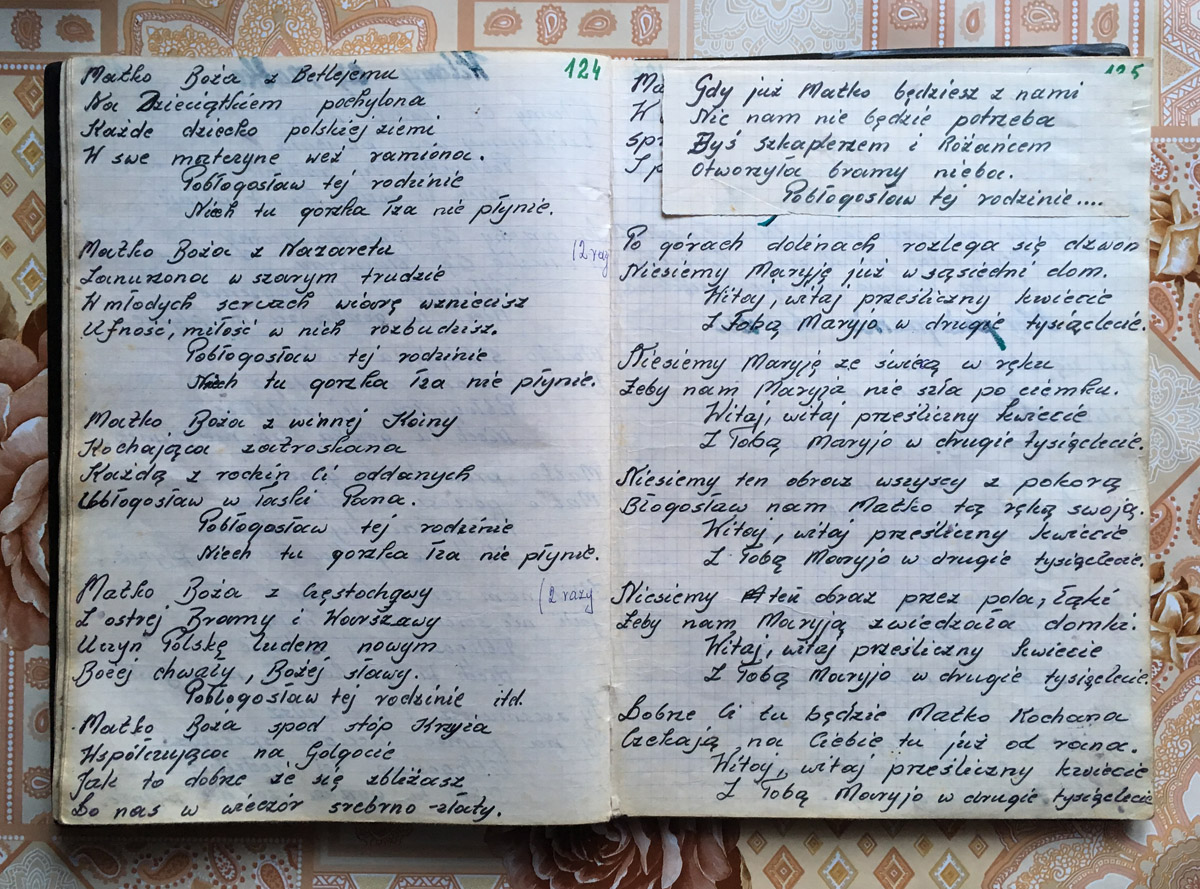 124
Matko Boża z Betlejemu
Na Dzieciątkiem pochylona
Każde dziecko polskiej ziemi
W swe matczyne weź ramiona.
Pobłogosław tej rodzinie
Niech tu gorzka łza nie płynie.
Matko Boża z Nazaretu (2 razy
Zanurzona w szarym trudzie
W młodych sercach wiarę wzniecisz
Ufność, miłość w nich rozbudzisz.
Pobłogosław tej rodzinie
Niech tu gorzka łza nie płynie.
Matko Boża z winnej Kainy
Kochająca zatroskana
Każdą z rodzin Ci oddanych
Ubłogosław w łaski Pana.
Pobłogosław tej rodzinie
Niech tu gorzka łza nie płynie.
Matko Boża z Częstochowy (2 razy
Z ostrej Bramy i Warszawy
Uczyn Polskę ludem nowym
Bożej chwały, Bożej sławy.
Pobłogosław tej rodzinie itd.
Matko Boża spod stóp Krzyża
Współczująca na Golgocie
Jak to dobrze że się zbliżasz
Do nas w wieczór srebrno-złoty.
125
Ma
W
spr
I p
Gdy już Matko będziesz z nami
Nic nam nie będzie potrzeba
Byś szkaplerzem i Różańcem
Otworzyła bramy nieba.
Pobłogosław tej rodzinie....
Po górach dolinach rozlega się dzwon
Niesiemy Maryję już w sąsiedni dom.
Witaj, witaj prześliczny kwiecie
Z Tobą Maryjo w drugie tysiąclecie.
Niesiemy Maryję ze świecą w ręku
Żeby nam Maryja nie szła po ciemku.
Witaj, witaj prześliczny kwiecie
Z Tobą Maryjo w drugie tysiąclecie.
Niesiemy ten obraz wszyscy z pokorą
Błogosław nam Matko tą ręką swoją.
Witaj, witaj prześliczny kwiecie
Z Tobą Maryjo w drugie tysiąclecie.
Niesiemy ten obraz przez pola, łąki
Żeby nam Maryją zwiedzała domki.
Witaj, witaj prześliczny kwiecie
Z Tobą Maryjo w drugie tysiąclecie.
Dobrze Ci tu będzie Matko Kochana
Czekają na Ciebie tu już od rana.
Witaj, witaj prześliczny kwiecie
Z Tobą Maryjo w drugie tysiąclecie